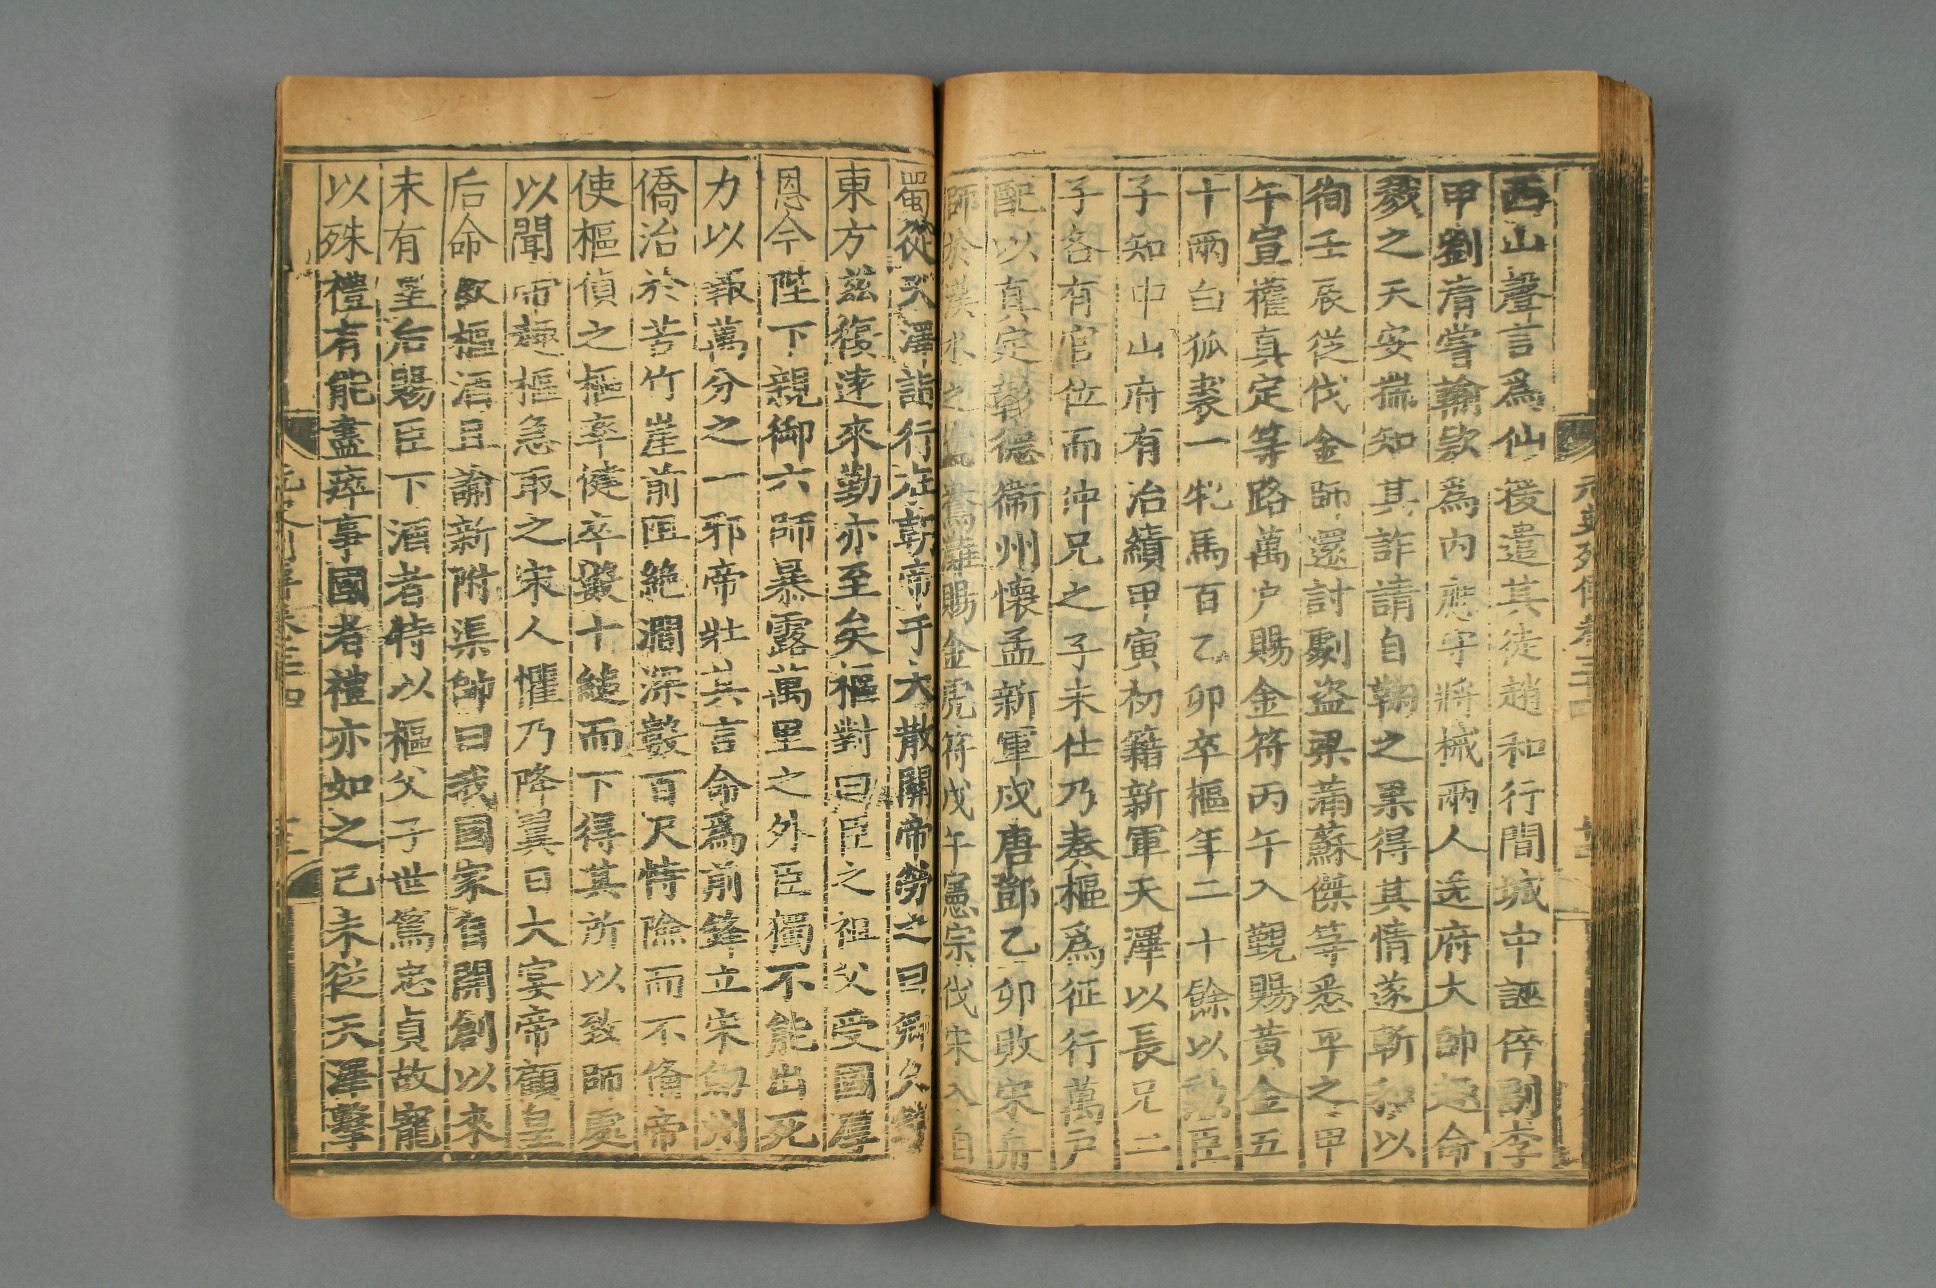 元史列傳卷三十四
西山聲言爲仙後遣其徒趙和行間城中誣倅副李
甲劉清嘗輸欵爲内應守將械兩人送府大帥趣命
戮之天安揣知其詐請自鞫之果得其情遂斬和以
徇壬辰從伐金師還討劇盗梁蒲蘇傑等悉平之甲
午宣權真定等路萬户賜金符丙午入覲賜黄金五
十兩白狐裘一牝馬百乙卯卒樞年二十餘以勲臣
子知中山府有治績甲寅初籍新軍天澤以長兄二
子各有官位而仲兄之子未仕乃奏樞爲征行萬戸
配以真定彰德衛州懷孟新軍戍唐鄧乙卯敗宋舟
師於漢水之鴛鴦灘賜金虎符戊午憲宗伐宋入自
蜀從天澤詣行在朝帝于大散關帝勞之曰卿久鎮
東方兹復遠來勤亦至矣樞對曰臣之祖父受國厚
恩今陛下親御六師暴露萬里之外臣獨不能出死
力以報萬分之一邪帝壯其言命爲前鋒立宋劔州
僑治於苦竹崖前阻絶澗深數百尺恃險而不備帝
使樞偵之樞率健卒數十縋而下得其所以致師處
以聞帝趣樞急取之宋人懼乃降翼日大宴帝顧皇
后命飲樞酒且諭新附渠帥曰我國家自開創以來
未有皇后賜臣下酒者特以樞父子世爲忠貞故寵
以殊禮有能盡瘁事國者禮亦如之己未從天澤擊
元史列傳卷三十四